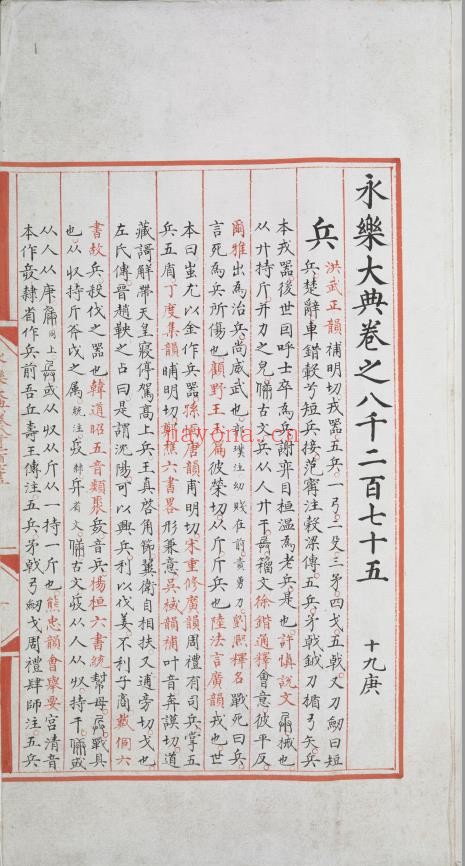 永樂大典卷之八千二百七十五 十九庚
兵 洪武正韻補明切戎器五兵一弓二殳三矛四戈五戟又刀劒曰短
兵楚辭車錯轂兮短兵接范甯注穀梁傳五兵矛戟鉞刀楯弓矢兵
本戎器後世因呼士卒為兵謝奕目桓溫為老兵是也許慎說文械也
从廾持斤并力之皃古文兵从人廾干籀文徐鍇通釋會意彼平反
爾雅出為治兵尚威武也郭璞注幼賤在前貴勇力劉熙釋名戰死曰兵
言死為兵所傷也顧野王玉篇彼榮切从斤斤兵也陸法言廣韻戎也世
本曰蚩尤以金作兵器孫愐唐韻甫明切宋重修廣韻周禮有司兵掌五
兵五盾丁度集韻晡明切鄭樵六書畧形兼意吳棫韻補叶音奔謨切道
藏謌解帶天皇寢停駕高上兵王真啓角節麗衛自相扶又逋旁切戈也
左氏傳晉趙鞅之占曰是謂沈陽可以興兵利以伐姜不利子商戴侗六
書故兵殺伐之器也韓道昭五音類聚音兵楊桓六書統幫母戰具
也从収持斤斧伐之屬統注古文从人从収持干或
从人从庚同上或从収从斤从一持一斤也熊忠韻會舉要宮清音
本作隸省作兵前吾丘壽王傳注五兵矛戟弓劒戈周禮肆師注五兵
nayona.cn